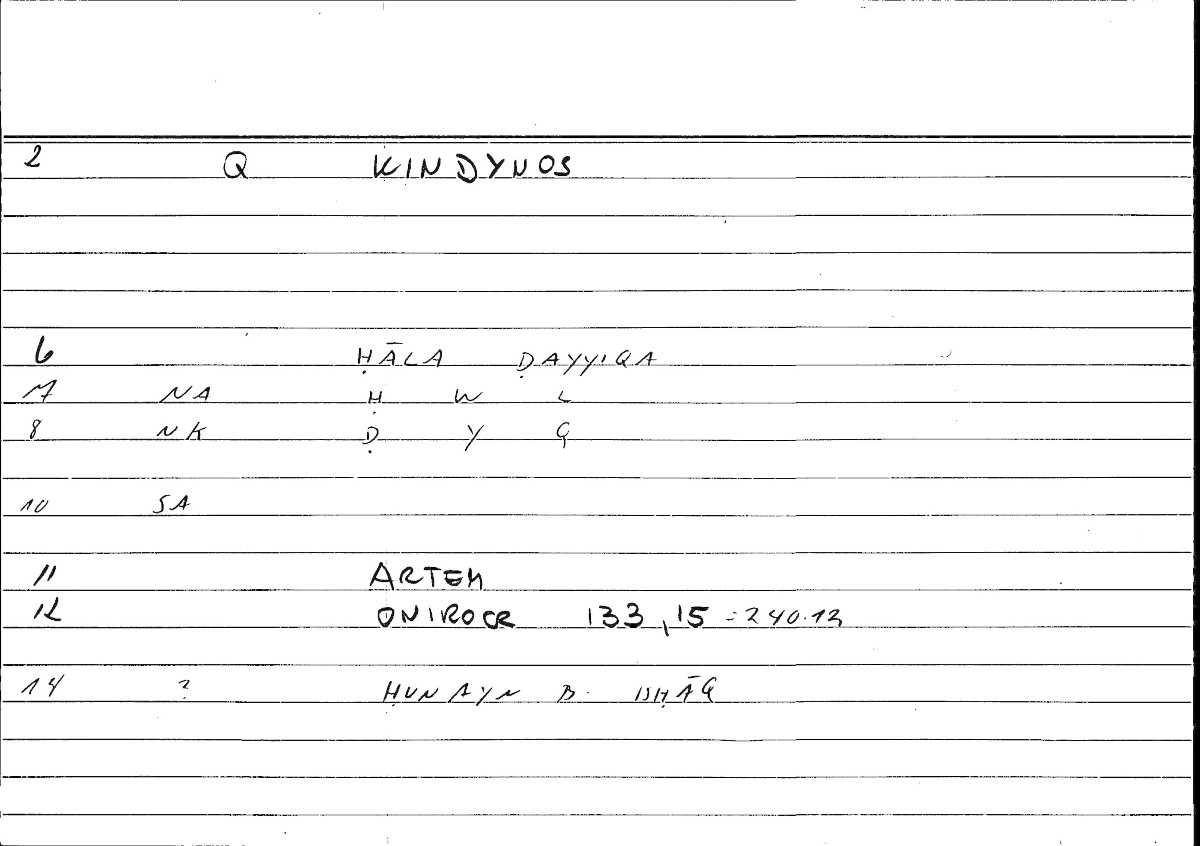 2 Q KINDYNOS
6 ḤĀLA ḌAYYIQA
7 NA Ḥ W L
8 NK Ḍ Y Q
10 SA
11 ARTEM
12 ONIROCR 133,15 = 240.12
14 ? ḤUNAYN B. ISḤĀQ